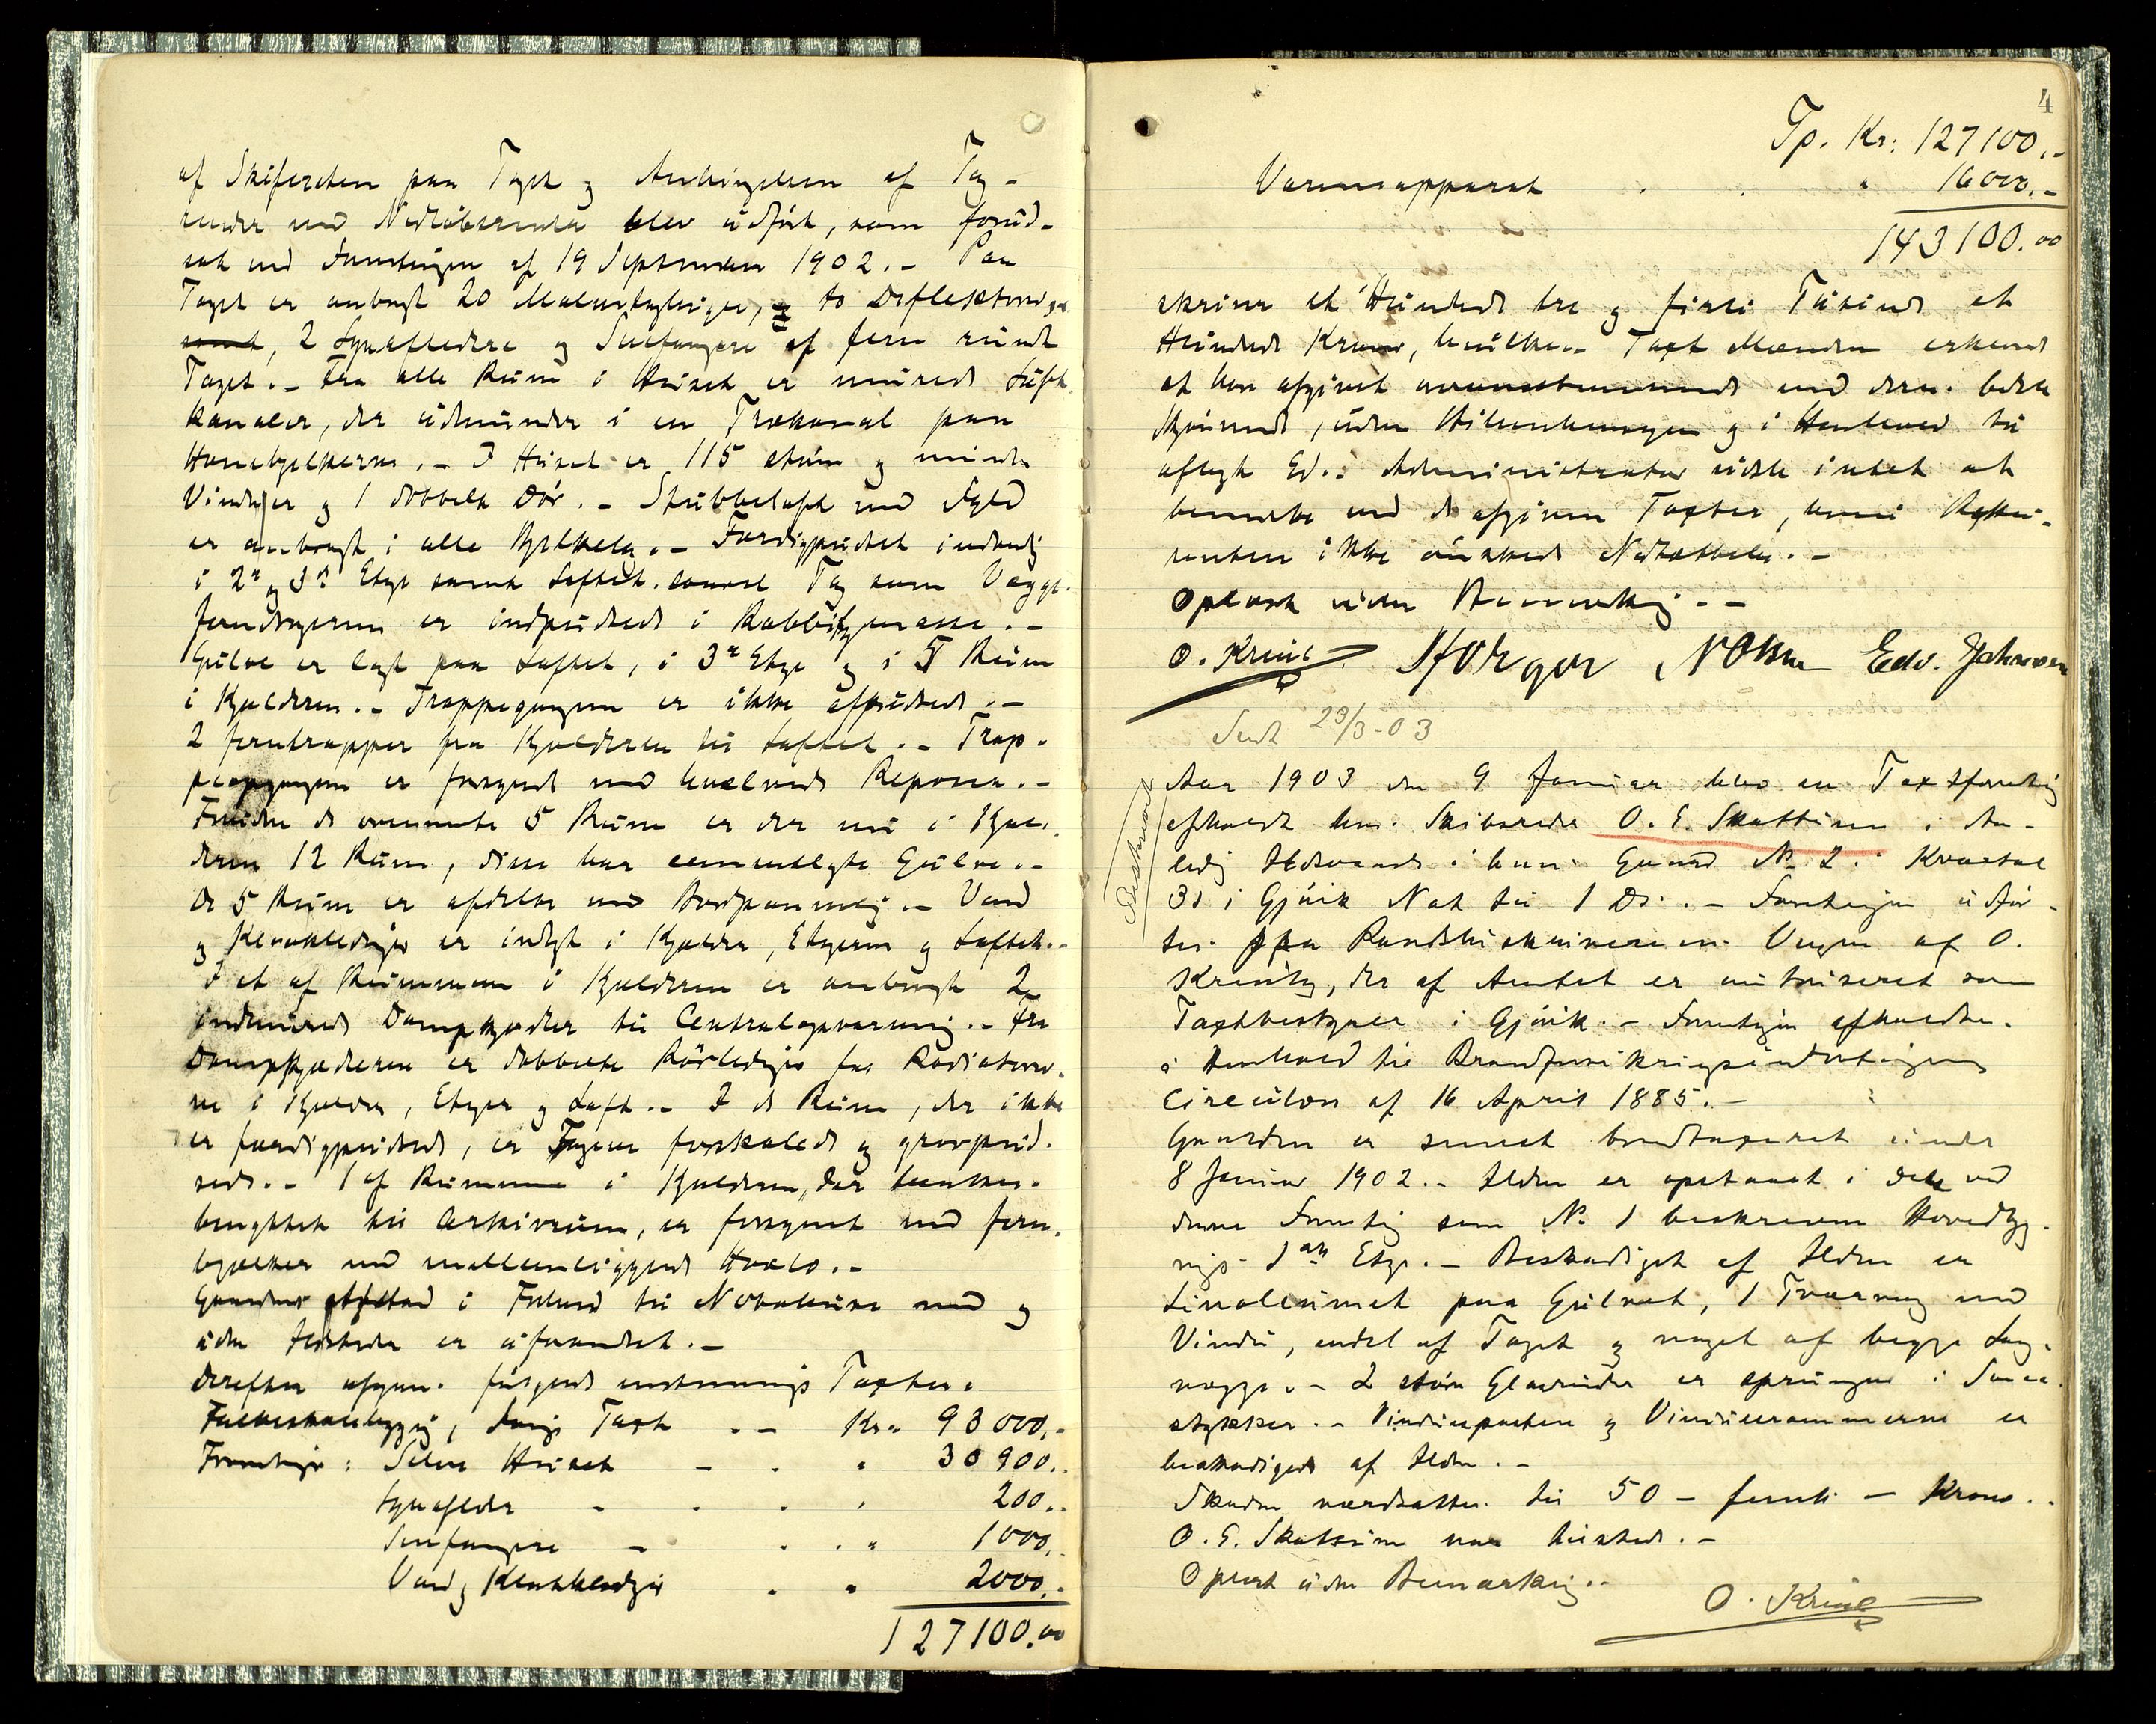 af Skifersten paa Taget og Anbringelsen af Tag-
render med Nedløbsrender blev udført, som forud-
sat ved Forretningen af 19 September 1902.- Paa
Taget er anbragt 20 og to Deflektorer,
samt, 2 Lynafledere og Snefangere af Jern rundt
Taget.- Fra alle Rum i Huset er murede Luft-
kanaler, der udmunder i en Trækanal paa
Hanebjelkerne.- I Huset er 115 større og mindre
Vinduer og 1 dobbelt Dør.- Stubbeloft med Fyld
er anbragt i alle Bjelkelag.- Færdigpudset indvendig
i 2n og 3n Etage samt Loftet. saavel Tag som Vægge.
Jerndragerne er indpudsede i Rabbitzmasse.-
Gulve er lagt paa Loftet, i 3n Etage og i 5 Rum
i Kjælderen.- Trappegangene er ikke afpudsede.-
2 Jerntrapper fra Kjælderen til Loftet.- Trap-
pegangen er forsynet med hvælvede Reposer.-
Foruden de ovennævnte 5 Rum er der nu i Kjæl-
deren 12 Rum, disse har cementlagte Gulve.-
De 5 Rum er afdelte med Bordpanneling.- Vand
og Kloakledninger er indlagt i Kjelder, Etagerne og Loftet.-
I et af Rummene i Kjælderen er anbragt 2
indmurede Dampkjedler til Centralopvarmning.- Fra
Dampkjedlerne er dobbelte Rørledninger for Radiatorer-
ne i Kjelder, Etager og Loft.- I de Rum, der ikke
er færdigpudsede, er Tagene forskalede og grovpud-
sede.- 1 af Rummene i Kjælderen, der tænkes
benyttet til Arkivrum, er forsynet med Jern-
bjælker med mellemliggende Hvælv.-
Gaardens Afstand i Forhold til Nabohuse med og
uden Ildsteder er uforandret.-
Derefter afgaves følgende enstemmige Taxter:
Forrige Taxt .- Kr. 93000.-
Forretning: Selve Huset - . " 30900.-
Lynafleder - . . " 200.-
Snefangere - . . " 1000.-
Vand og Kloakledninger . " 2000.-
127100.00
4
Tp. Kr: 127100.-
Varmeapparat . . " 16000.-
143100.00
skriver et Hundrede tre og firti Tusinde et
Hundrede Kroner, hvilken Taxt Mændene erkjendte
at have afgivet overensstemmende med deres bedste
Skjønnende, uden Hilsenhensyn og i Henhold til
aflagt Ed.- Administrator vidste intet at
bemærke ved de afgivne Taxter, hvori Rekvi-
renten ikke ønskede Nedsættelse.-
Oplæst uden Bemærkning.-
O. Krine Edv. Johnsen
Sendt 23/3-03
Aar 1903 den 9 Januar blev en Taxtforretning
afholdt hos Skibsreder O. E. Skattum i An-
ledning Ildsvaade i hans Gaard No 2 i Kvartal
31 i Gjøvik Nat til 1 Ds.- Forretningen udfør-
tes paa af O.
Krine, der af Amtet er autoriseret som
Taxtbestyrer i Gjøvik.- Forretningen afholdtes
i Henhold til Brandforsikringsindretningens
Circulær af 16 April 1885.-
Gaarden er senest brandtaxeret under
8 Januar 1902.- Ilden er opstaaet i den ved
denne Forretning som No 1 beskrevne Hovedbyg-
nings 1ste Etage.- Beskadiget af Ilden er
Linoleumet paa Gulvet, 1 Tværvæg med
Vindu, endel af Taget og noget af begge Lang-
vægge.- 2 større Glasruder er sprungne i Smaa-
stykker.- Vinduesposten og Vinduesrammerne er
beskadigede af Ilden.-
Skaden værdsættes til 50 - femti - Kroner.-
O. E. Skattum var tilstede.-
Oplæst uden Bemærkning.-
O. Krine